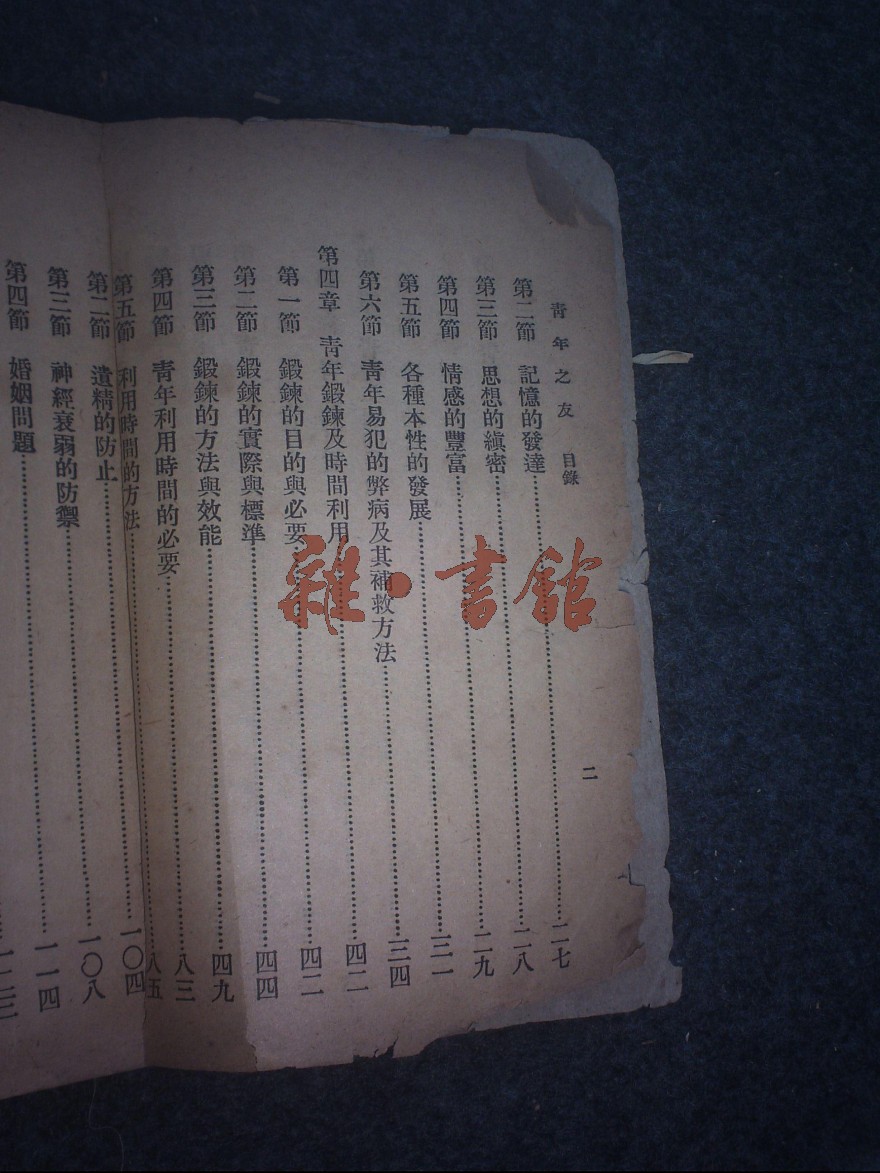 青年之友 目錄 二
第二節 記憶的發達……二七
第三節 思想的縝密……二八
第四節 情感的豐富……二九
第五節 各種本性的發展……三一
第六節 青年易犯的弊病及其補救方法……三四
第四章 青年鍛鍊及時間利用……四二
第一節 鍛鍊的目的與必要……四二
第二節 鍛鍊的實際與標準……四四
第三節 鍛鍊的方法與效能……四九
第四節 青年利用時間的必要……八三
第五節 利用時間的方法……八五
一〇四
第二節 遺精的防止……一〇八
第三節 神經衰弱的防禦……一一四
第四節 婚姻問題……一二三
雜·書館